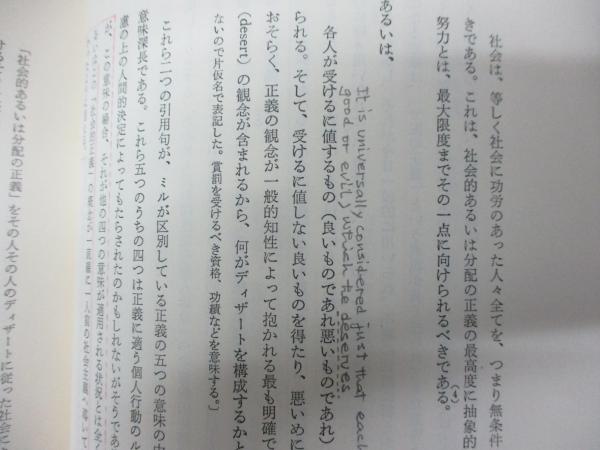 社会は、等しく社会に功労のあった人々全てを、つまり無条件
きである。これは、社会的あるいは分配の正義の最高度に抽象的
努力とは、最大限度までその一点に向けられるべきである。(4)
あるいは、
It is universally considered just that each
good or evil) which he deserves
各人が受けるに値するもの（良いものであれ悪いものであれ）
られる。そして、受けるに値しない良いものを得たり、悪いめに
おそらく、正義の観念が一般的知性によって抱かれる最も明確で
(desert) の観念が含まれるから、何がディザートを構成するかと
ないので片仮名で表記した。賞罰を受けるべき資格、功績などを意味する。〕
これら二つの引用句が、ミルが区別している正義の五つの意味の中
意味深長である。これら五つのうちの四つは正義に適う個人行動のル
慮の上の人間的決定によってもたらされたのかもしれないがそうであ
が、この意味の場合、それが他の四つの意味が適用される状況とは全く
「社会的あるいは分配の正義」をその人その人のディザートに従った社会に